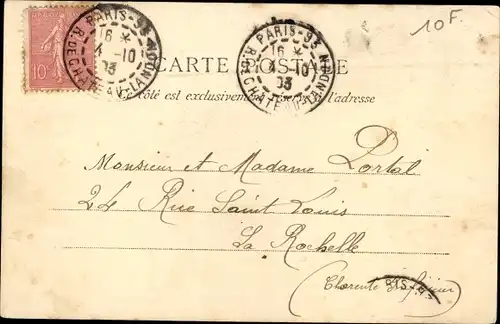 10F.
PARIS-93
16 *
4 -10
03
R. DE CHATEAU-LANDON
PARIS-93
16 *
4 -10
03
R. DE CHATEAU-LANDON
10c
CARTE POSTALE
Ce côté est exclusivement réservé à l'adresse
Monsieur et Madame Portal
24 Rue Saint Louis
La Rochelle
(Charente Inférieure